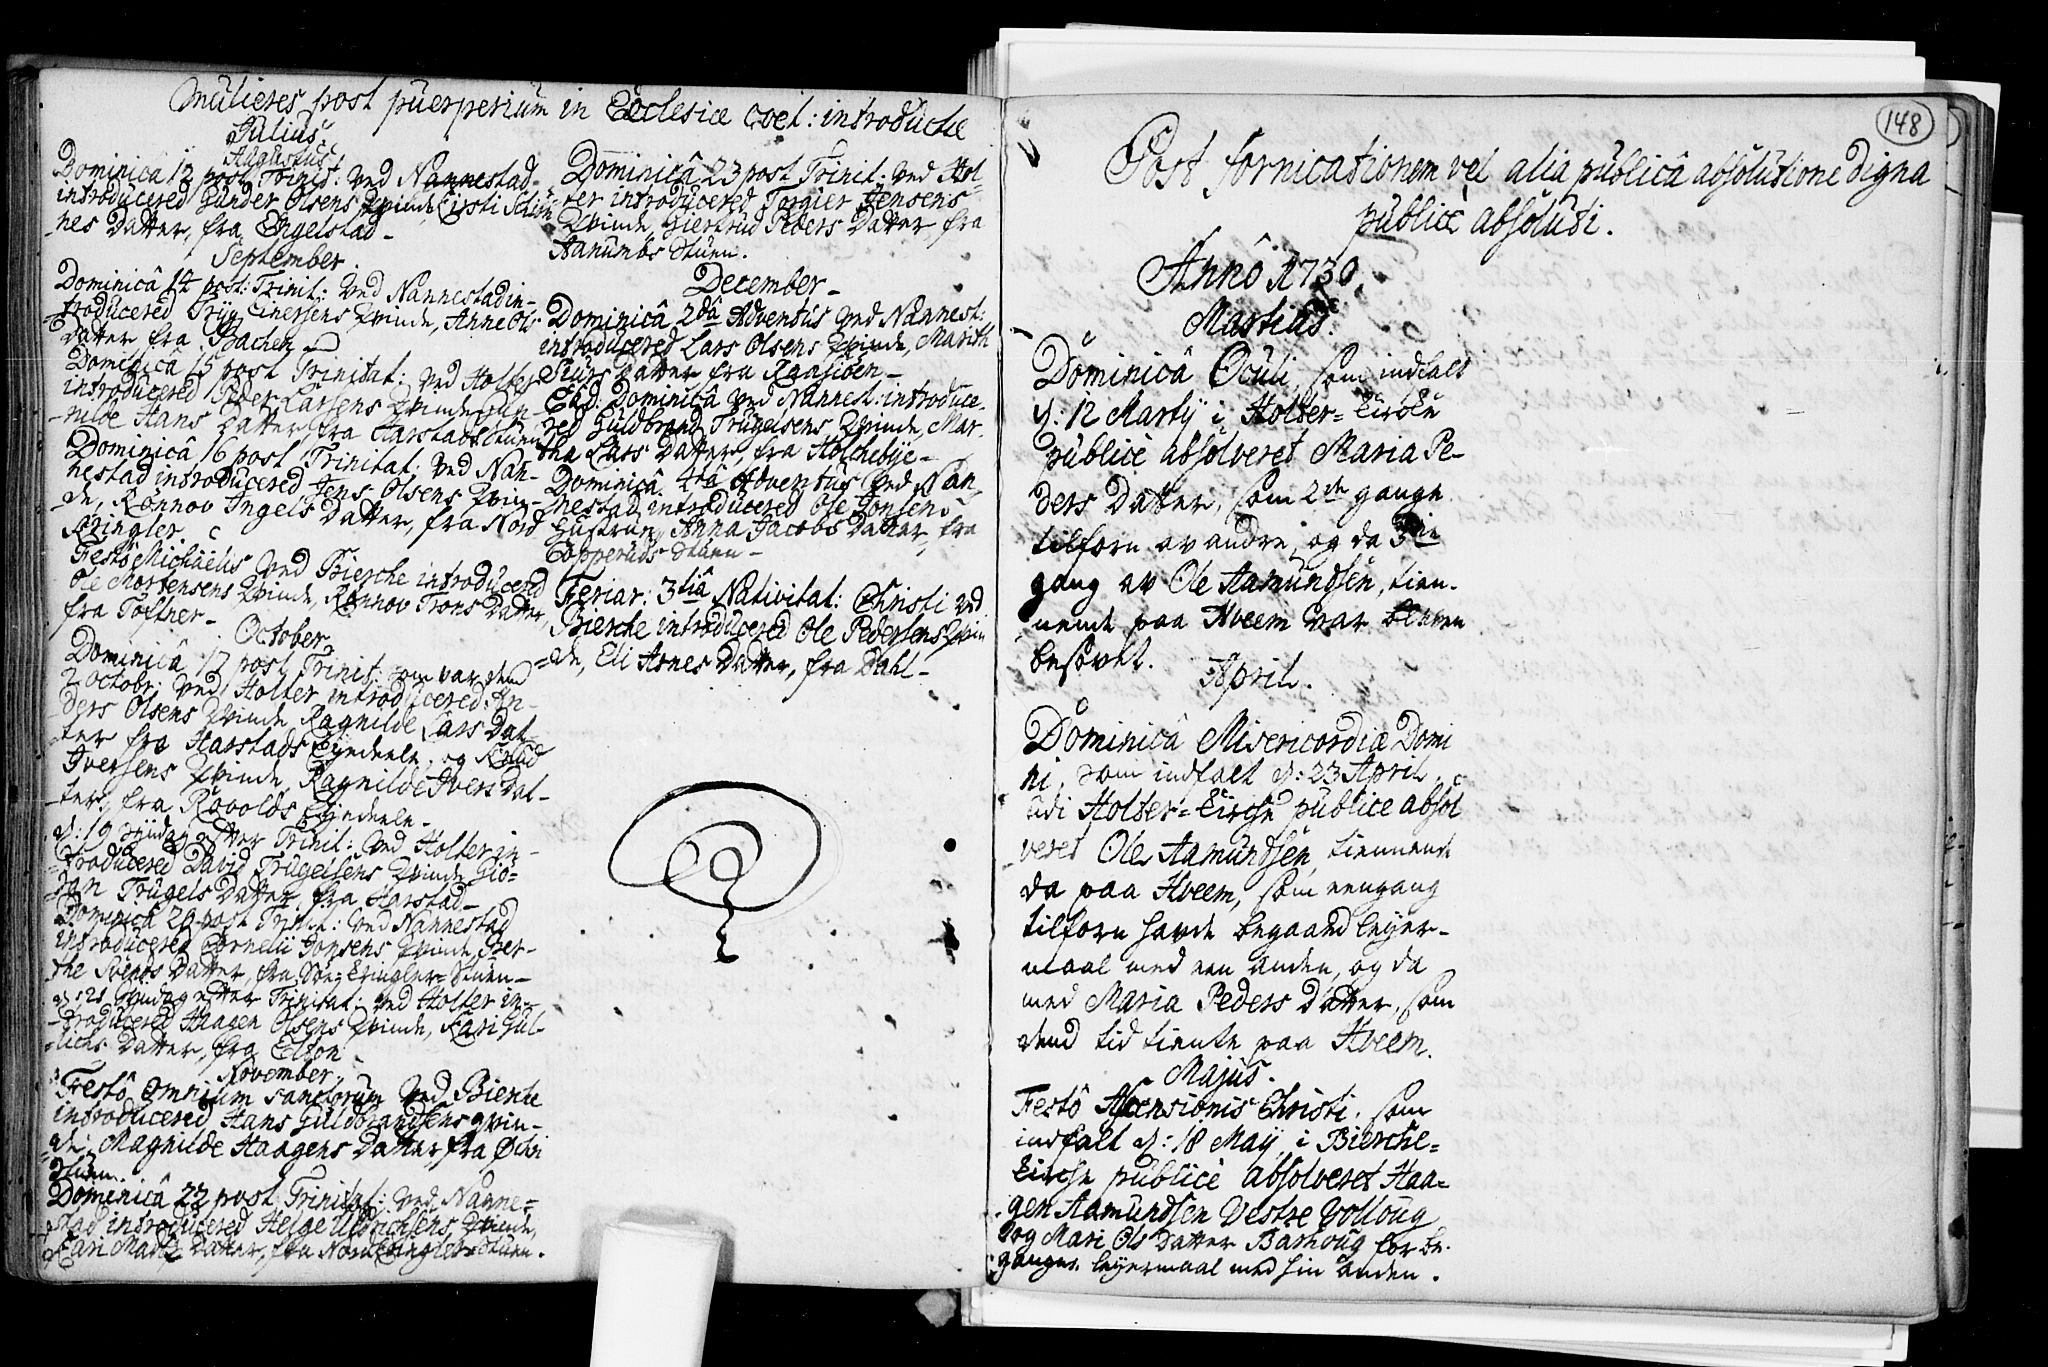 Mulieres post puerperium in Ecclesiæ coet: introductæ
Julius
Augustus
Dominicâ 12 post Trinit: ved Nannestad
introducered Gunder Olsens Qvinde, Kirsti
nes Datter, fra Engelstad
September.
Dominicâ 14 post: Trinit: ved Nannestad in-
troducered Tryg Einersens Qvinde, Anne Ols
Datter fra Bachen
Dominicâ 15 post Trinitat: ved Holter
introducered Peder Larsens Qvinde, Gun-
nilde Hans Datter fra Harstadstuen
Dominicâ 16 post Trinitat: ved Nan-
nestad introducered Jens Olsens Qvin-
de, Rønnov Ingels Datter, fra Nord
Kringler.
Festô Michaëlis ved Bierche introducered
Ole Mortensens Qvinde, Rønnov Trons Datter,
fra Tøftner-
October.
Dominicâ 17 post Trinit: som var dend
2 octobr: ved Holter introducered An-
ders Olsens Qvinde Ragnilde Lars Dat-
ter fra Harstads Eyedeele, og Knud
Iversens Qvinde Ragnilde Ivers Dat-
ter, fra Røvolds Eyedeele-
d: 19 Syndag efter Trinit: ved Holter in-
troducered David Trugelsens Qvinde Gio-
ran Trugels Datter, fra Harstad-
Dominicâ 20 post Trinit: ved Nannestad
introducered Cornelii Jonsens Qvinde, Ber-
the Svends Datter, fra Søe-Kringler-Stuen-
d: 21 Syndag efter Trinitat: ved Holter in-
troducered Haagen Olsens Qvinde, Kari Gul-
lichs Datter, fra Elton
November.
Festô Omnium Sanctorum ved Bierche
introducered Hans Guldbrandsens qvin-
de, Magnilde Haagens Datter, fra Øchri
stuen.
Dominicâ 22 post Trinitat: ved Nanne-
stad introducered Helge Ulrichsens Qvinde,
Kari Matz Datter, fra Nord Kringler Stuen.
Dominicâ 23 post Trinit: ved Hol-
ter introducered Torgier Jensens
Qvinde, Giertrud Peders Datter fra
Aanumbs Stuen.
December-
Dominicâ 2dâ Adventus ved Nannest:
introducered Lars Olsens Qvinde, Marith
Siurs Datter fra Raasioen-
Ead: Dominicâ ved Nannest: introduce-
red Guldbrand Trugelsens Qvinde, Mar-
tha Lars Datter, fra Holchebye-
Dominicâ 4tâ Adventus ved Nan-
nestad introducered Ole Jonsens
Hustrue, Anna Jacobs Datter, fra
Copperuds stuen-
Feriar: 3tiâ Nativitat: Christi ved
Bierche introducered Ole Pedersens Qvin
de, Eli Arnes Datter, fra Dahl-
148
Post fornicationem vel alia publicâ absolutione digna
publicè absoluti.
Annô 1730.
Martius.
Dominicâ Oculi, som indfalt
d: 12 Martij i Holter-Kirke
publicè absolveret Maria Pe-
ders Datter, som 2de gange
tilforn av andre, og da 3die
gang av Ole Aamundsen, tien-
nende paa Hveem var bleven
besovet.
April.
Dominicâ Misericordiæ Domi
ni, som indfalt d: 23 April
udi Holter-Kirche publicè absol
veret Ole Aamundsen, tiennende
da paa Hveem, som eengang
tilforn havde begaaed leyer-
maal med een anden, og da
med Maria Peders Datter, som
dend tid tiente paa Hveem.
Majus.
Festô Ascensionis Christi, som
indfalt d: 18 Maij, i Bierche-
Kirche publicè absolveret Haa-
gen Aamundsen Vestre Volloug
og Mari Ols Datter Barhoug for be-
ganget leyermaal med hin anden.